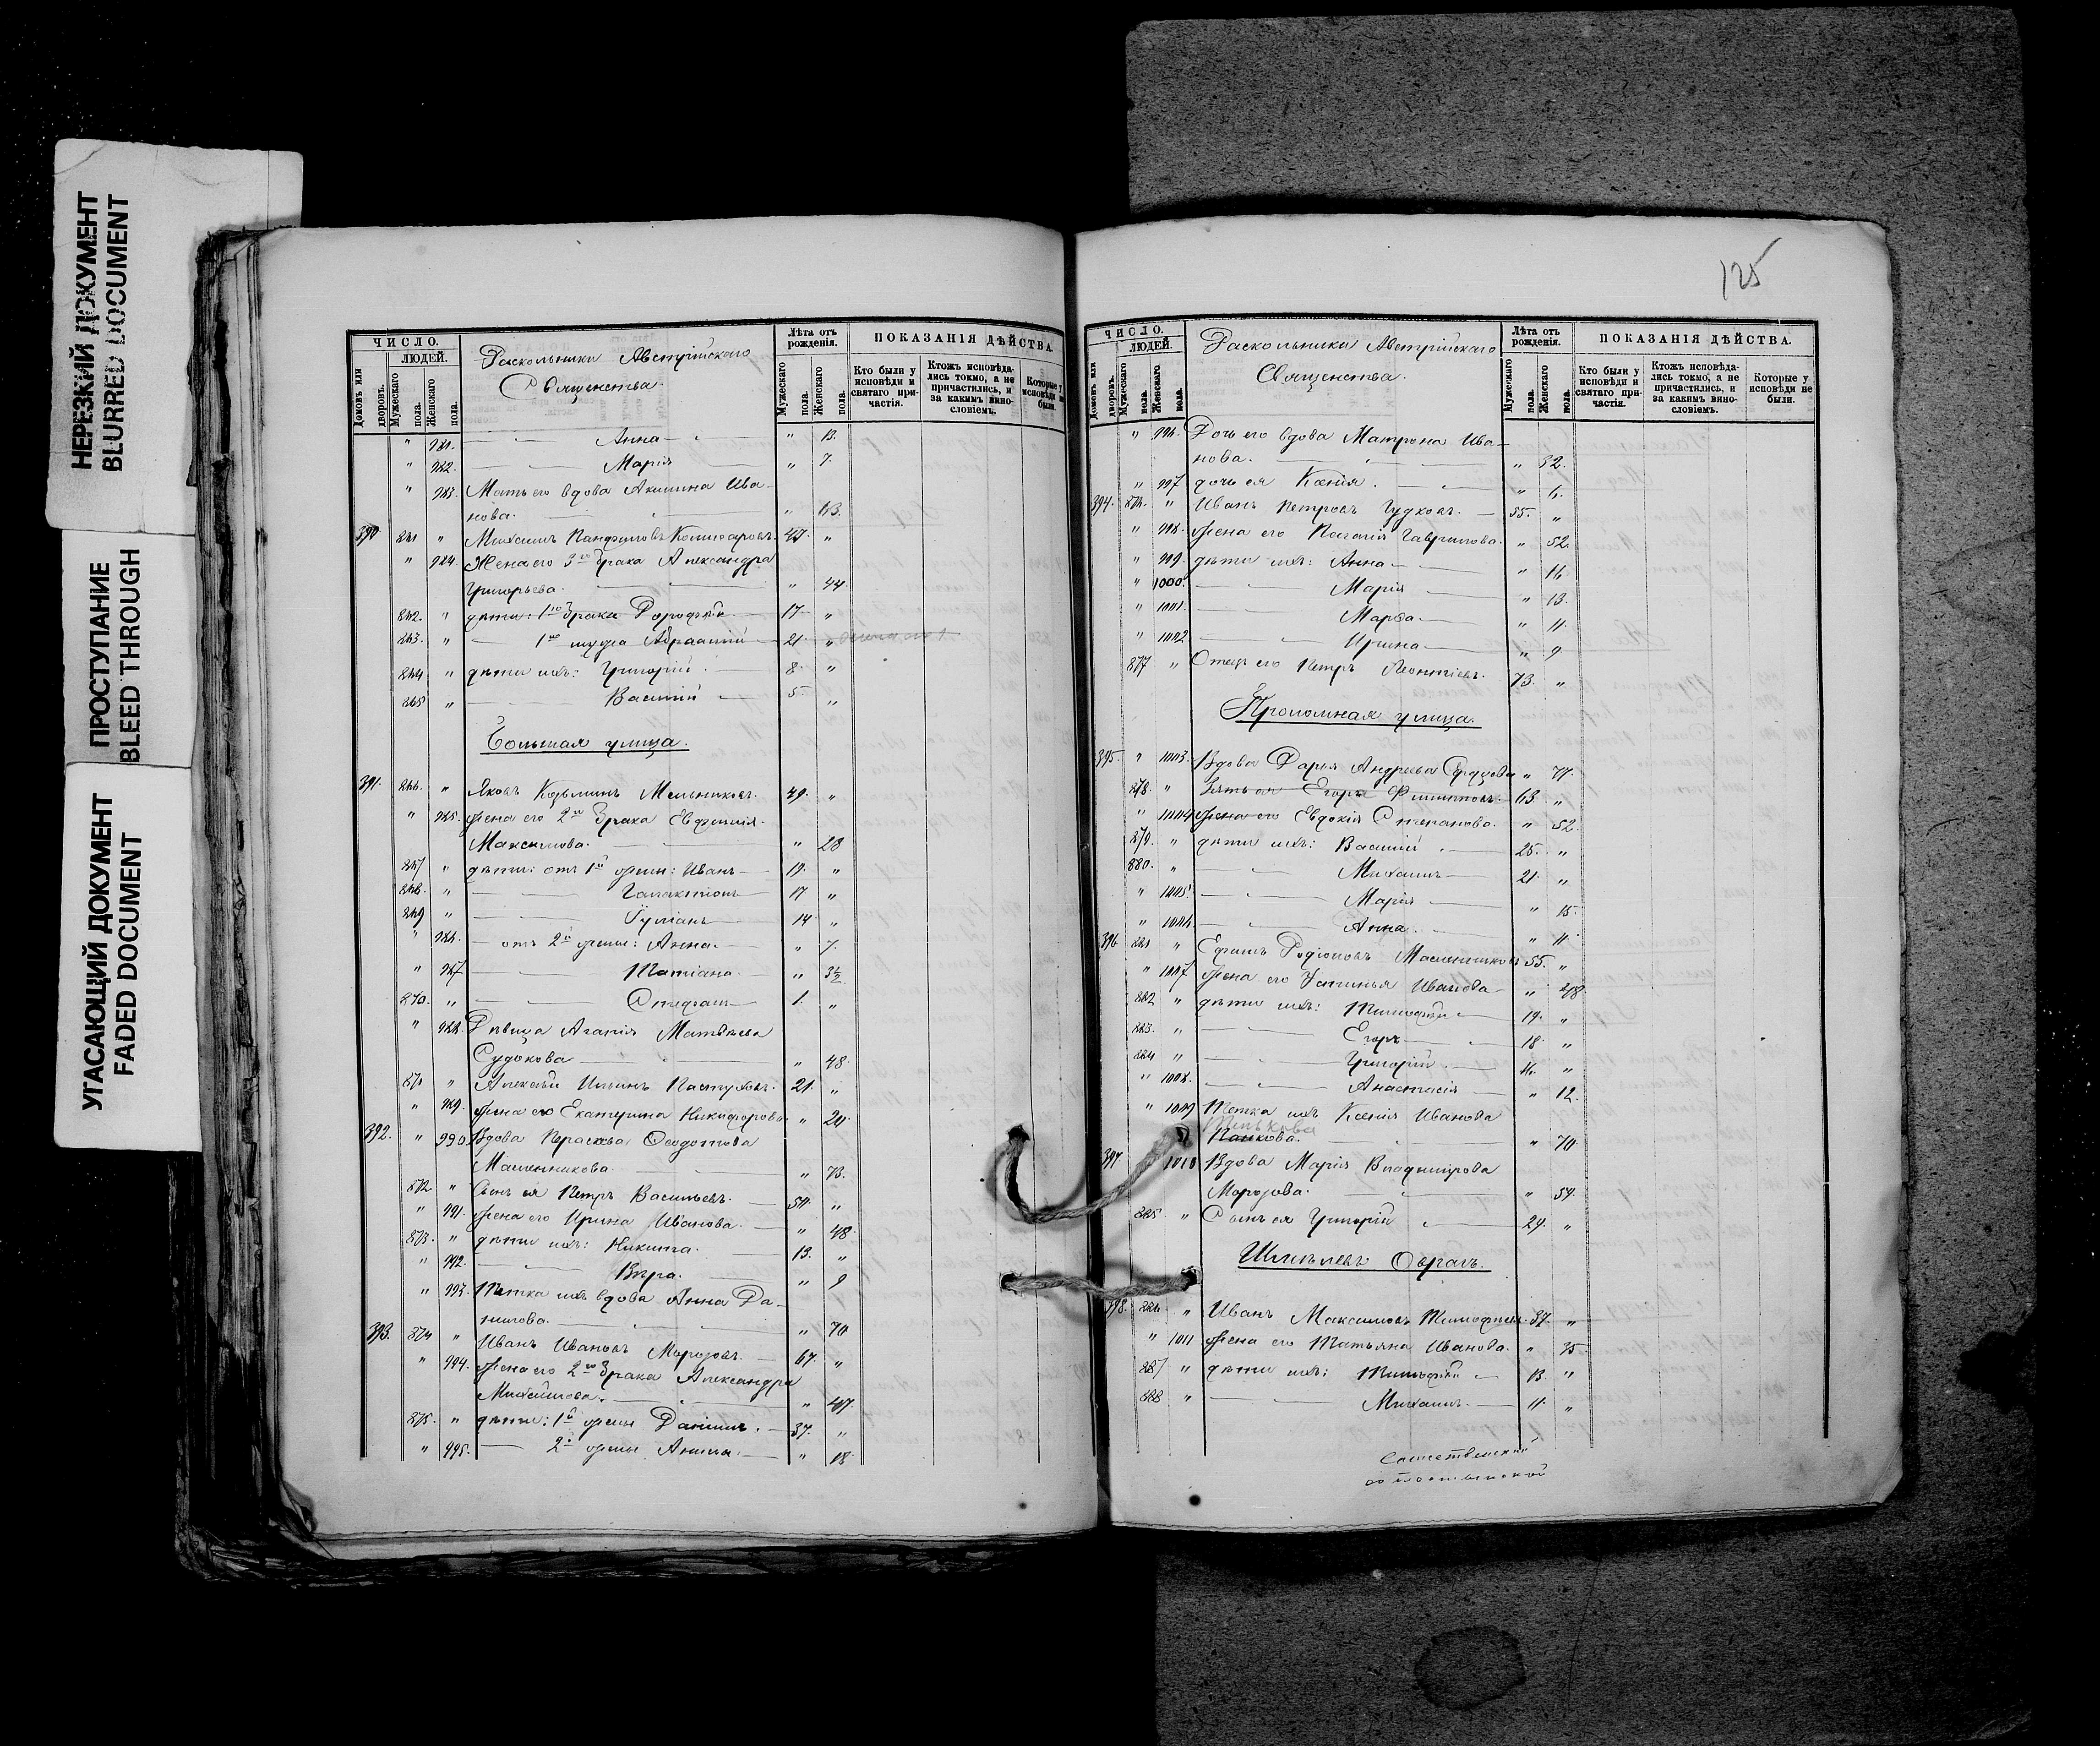 НЕРЕЗКИЙ ДОКУМЕНТ
BLURRED DOCUMENT
ПРОСТУПАНИЕ
BLEED THROUGH
УГАСАЮЩИЙ ДОКУМЕНТ
FADED DOCUMENT
ЧИСЛО.
ЛЮДЕЙ.
Домовъ или дворовъ.
Мужескаго пола.
Женскаго пола.
Раскольники Австрійскаго
Священства.
Лѣта отъ рожденія.
Мужескаго пола.
Женскаго пола.
ПОКАЗАНІЯ ДѢЙСТВА
Кто были у исповѣди и святаго причастія.
Ктожъ исповѣдались токмо, а не причастились, и за какимъ винословіемъ.
Которые у исповѣди не были.
" 981. — Анна — " 13.
" 982. — Марія — " 7.
" 983. Мать его вдова Акилина Ива-
нова. — " 63.
390 861 " Михаилъ Панфиловъ 47. "
" 984. Жена его 3го брака Александра
Григорьева. " 44
862. " дѣти: 1го брака 17 "
863. " — 1го мужа 21 "
864 " дѣти ихъ: Григорій. 8 "
865 " — Василій — 5 "
Большая улица.
391. 866. " Яковъ Козьминъ Мельниковъ. 49. "
" 985. Жена его 2го брака Евфимія
Максимова. — " 28
867 " дѣти: отъ 1й жены: Иванъ — 19. "
868. " — Галактіонъ 17 "
869 " — Іуліанъ 14 "
" 986. — отъ 2й жены: Анна. — " 7.
" 987 — Татіана — " 3½
870. " — 1. "
" 988. Дѣвица Агапія Матвѣева
— " 48
871 " Алексѣй Ильинъ Пастуховъ. 21. "
" 989. Жена его Екатерина Никифорова " 20
392. " 990. Вдова Параскева Ѳедотова
Масленникова. — " 73.
872 " Сынъ ея Петръ Васильевъ. — 50 "
" 991. Жена его Ирина Иванова. — " 48
873. " дѣти ихъ: Никита. — 13. "
" 992. — Вѣра. " 9
" 993. Тетка ихъ вдова Анна Да-
нилова. — " 70
393. 874 " Иванъ Ивановъ Морозовъ. — 67. "
" 994. Жена его 2го брака Александра
Михайлова. — " 47
875. " дѣти: 1й жены Даніилъ. — 37. "
" 995. — 2й жены — " 18
125
ЧИСЛО.
ЛЮДЕЙ.
Домовъ или дворовъ.
Мужескаго пола.
Женскаго пола.
Раскольники Австрійскаго
Священства.
Лѣта отъ рожденія.
Мужескаго пола.
Женскаго пола.
ПОКАЗАНІЯ ДѢЙСТВА.
Кто были у исповѣди и святаго причастія.
Ктожъ исповѣдались токмо, а не причастились, и за какимъ винословіемъ.
Которые у исповѣди не были.
" 996. Дочь его вдова Матрона Ива-
нова. — " 32.
" 997 дочь ея Ксенія. — " 6.
394. 876. " Иванъ Петровъ Гудковъ. — 55. "
" 998. Жена его Пелагія Гаврилова. " 52
" 999. дѣти ихъ: Анна — " 16
" 1000. — Марія — " 13.
" 1001. — Марѳа — " 11.
" 1002 — Ирина — " 9
877 " Отецъ его Петръ Леонтіевъ. 73. "
Проломная улица.
395. " 1003. Вдова Дарья Андреева " 77.
878. " Зять ея Егоръ Филипповъ. 63. "
" 1004 Жена его Евдокія Степанова. " 52
879. " дѣти ихъ: Василій — 25. "
880. " — Михаилъ — 21. "
" 1005 — Марія — " 15.
" 1006. — Анна. — " 11.
396 881 " Ефимъ Родіоновъ Масленниковъ 55. "
" 1007 Жена его Устинья Иванова — " 48
882 " дѣти ихъ: Тимофей — 19. "
883. " — Егоръ — 18. "
884 " — Григорій — 16. "
" 1008. — Анастасія — " 12.
" 1009 Тетка ихъ Ксенія Иванова
— " 70
397 1010 Вдова Марія Владимірова
Морозова. — " 54.
885 " Сынъ ея Григорій — 24. "
Шмелевъ Оврагъ.
398. 886. " Иванъ Максимовъ 37 "
" 1011 Жена его Татьяна Иванова. " 35
887 " дѣти ихъ: Тимофей — 13. "
888 " — Михаилъ. — 11. "